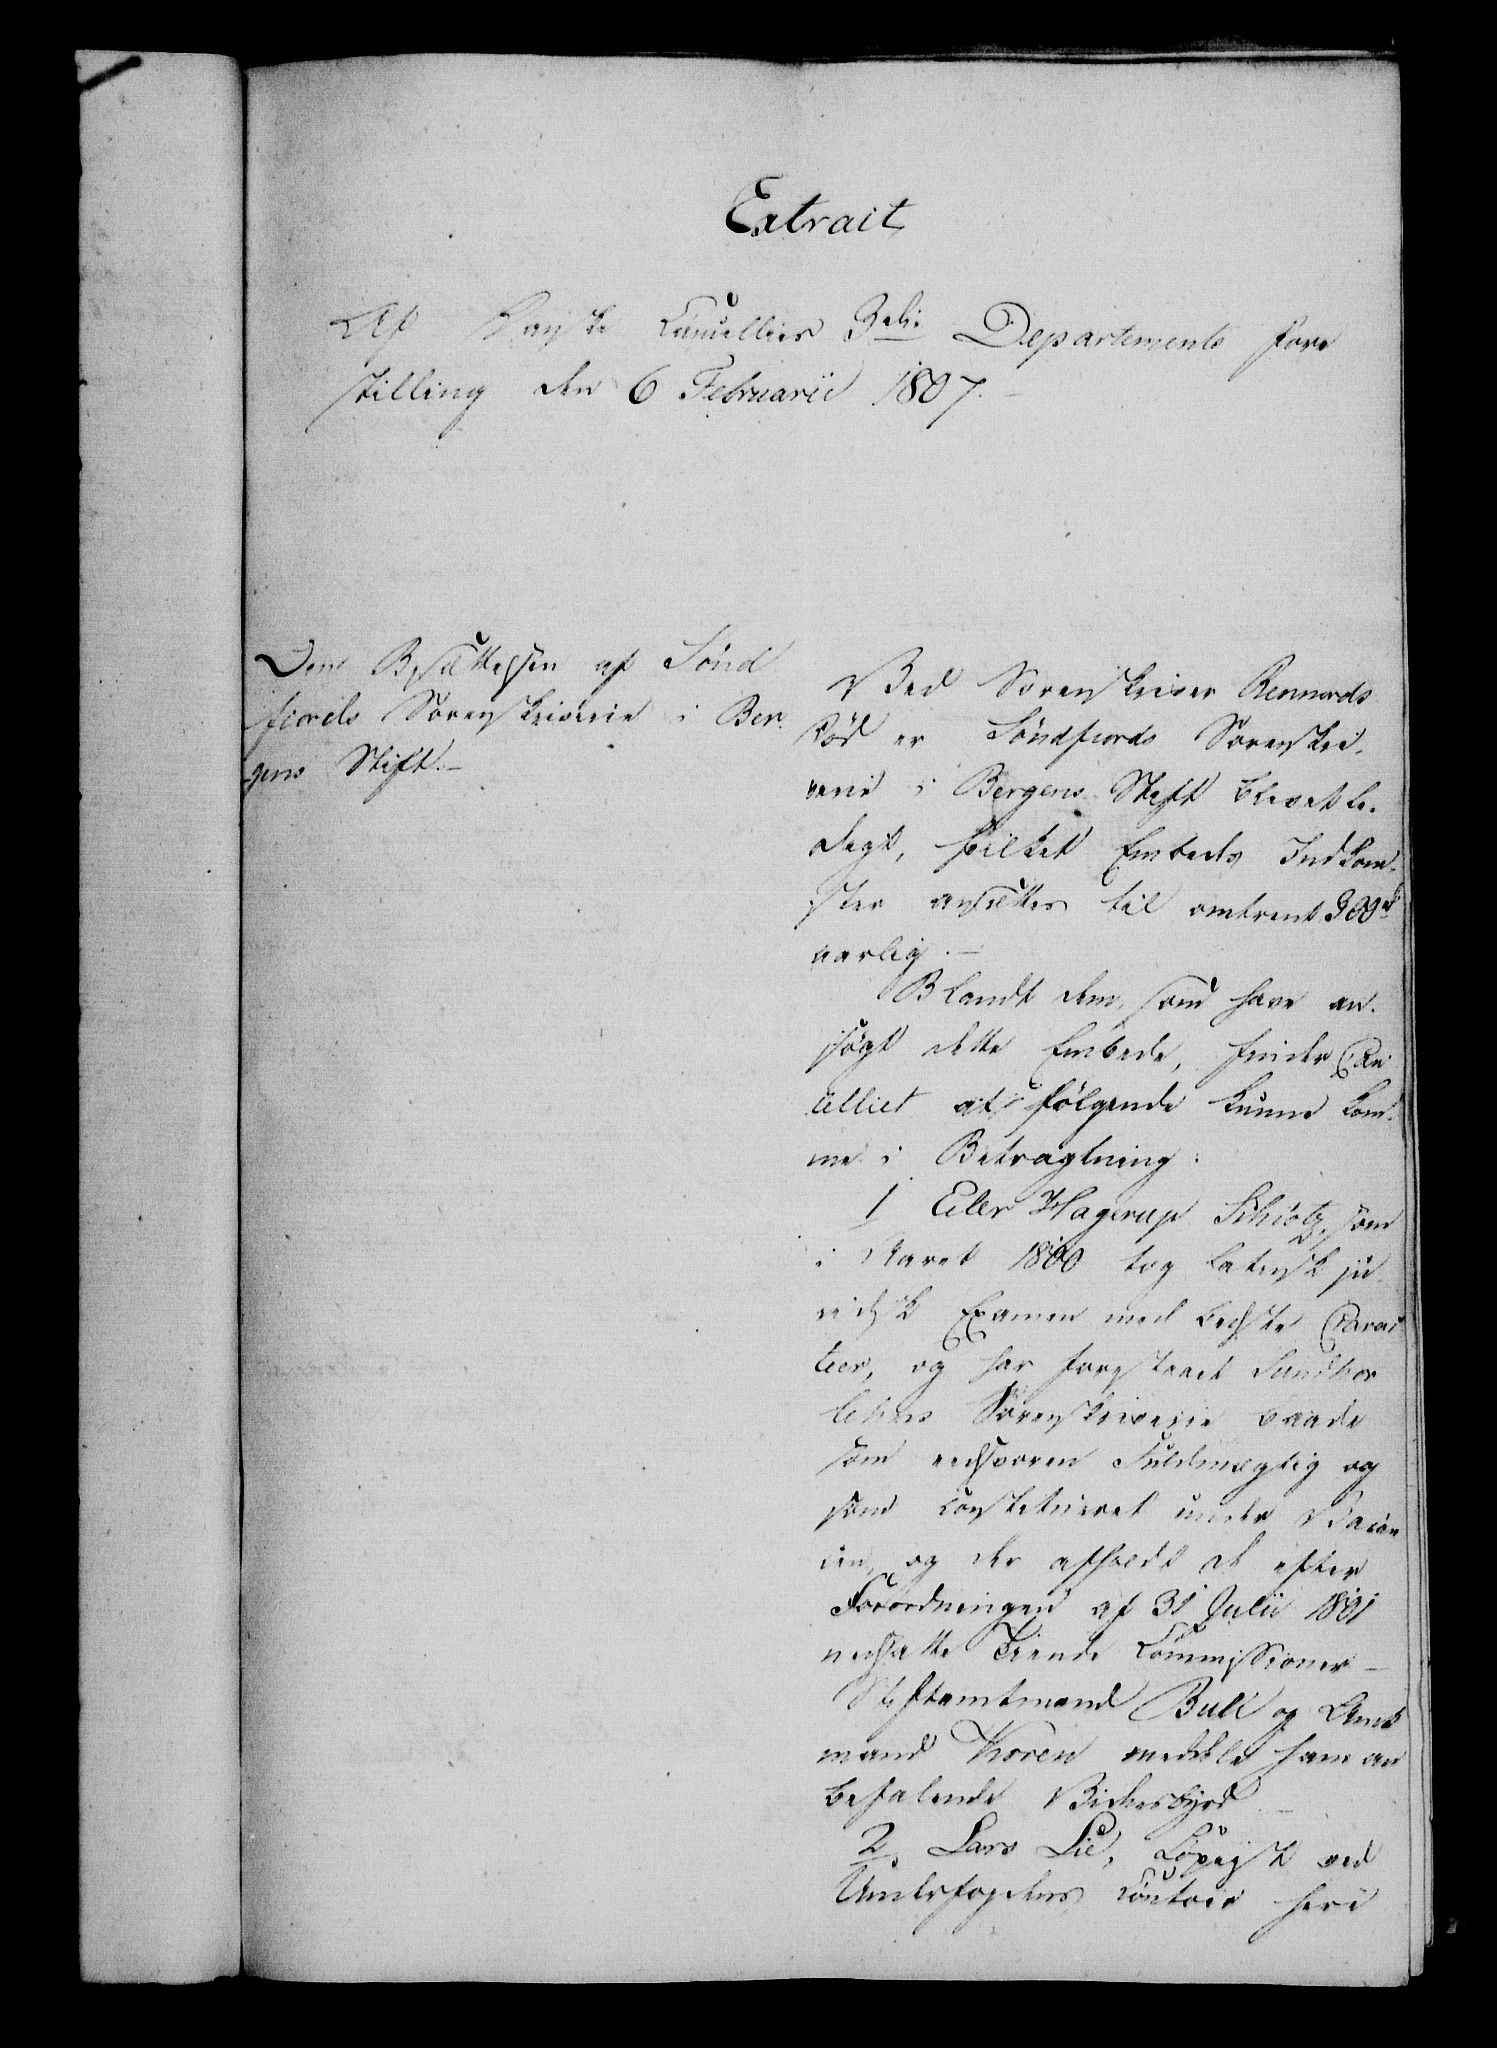 Extrait
Af Danske Cancellies 3die Departements Fore
stilling den 6 Februarii 1807.
Om Besættelsen af Sönd
fiords Sorenskriverie i Ber
gens Stift.
Ved Sorenskriver Rennords
Död er Söndfiords Sorenskri-
verie i Bergens Stift blevet le-
digt, hvilket Embeds Indkom-
ster ansættes til omtrent 300 rd
aarlig.
Blandt dem, som have an-
søgt dette Embede, finder Can
celliet at følgende kunne kom-
me i Betragtning:
1 Eiler Hagerup Schiøtz, som
i Aaret 1800 tog latinsk ju-
ridisk Examen med bedste Carac
teer, og har forestaaet Sundhor
lehns Sorenskriverie baade
som eedsvoren Fuldmægtig og
som constitueret under Vacan
cen, og de afholdt de efter
Forordningen af 31 Julii 1801
nedsatte Tiende Commissioner
Stiftamtmand Bull og Amt
mand Koren meddele ham an
befalende Vidnesbyrd
2, Lars Lie, Copiist ved
Underfogdens Contoir her i